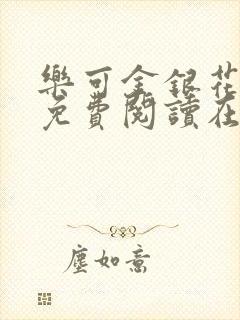 樂可金銀花
免費閱讀在
塵如意